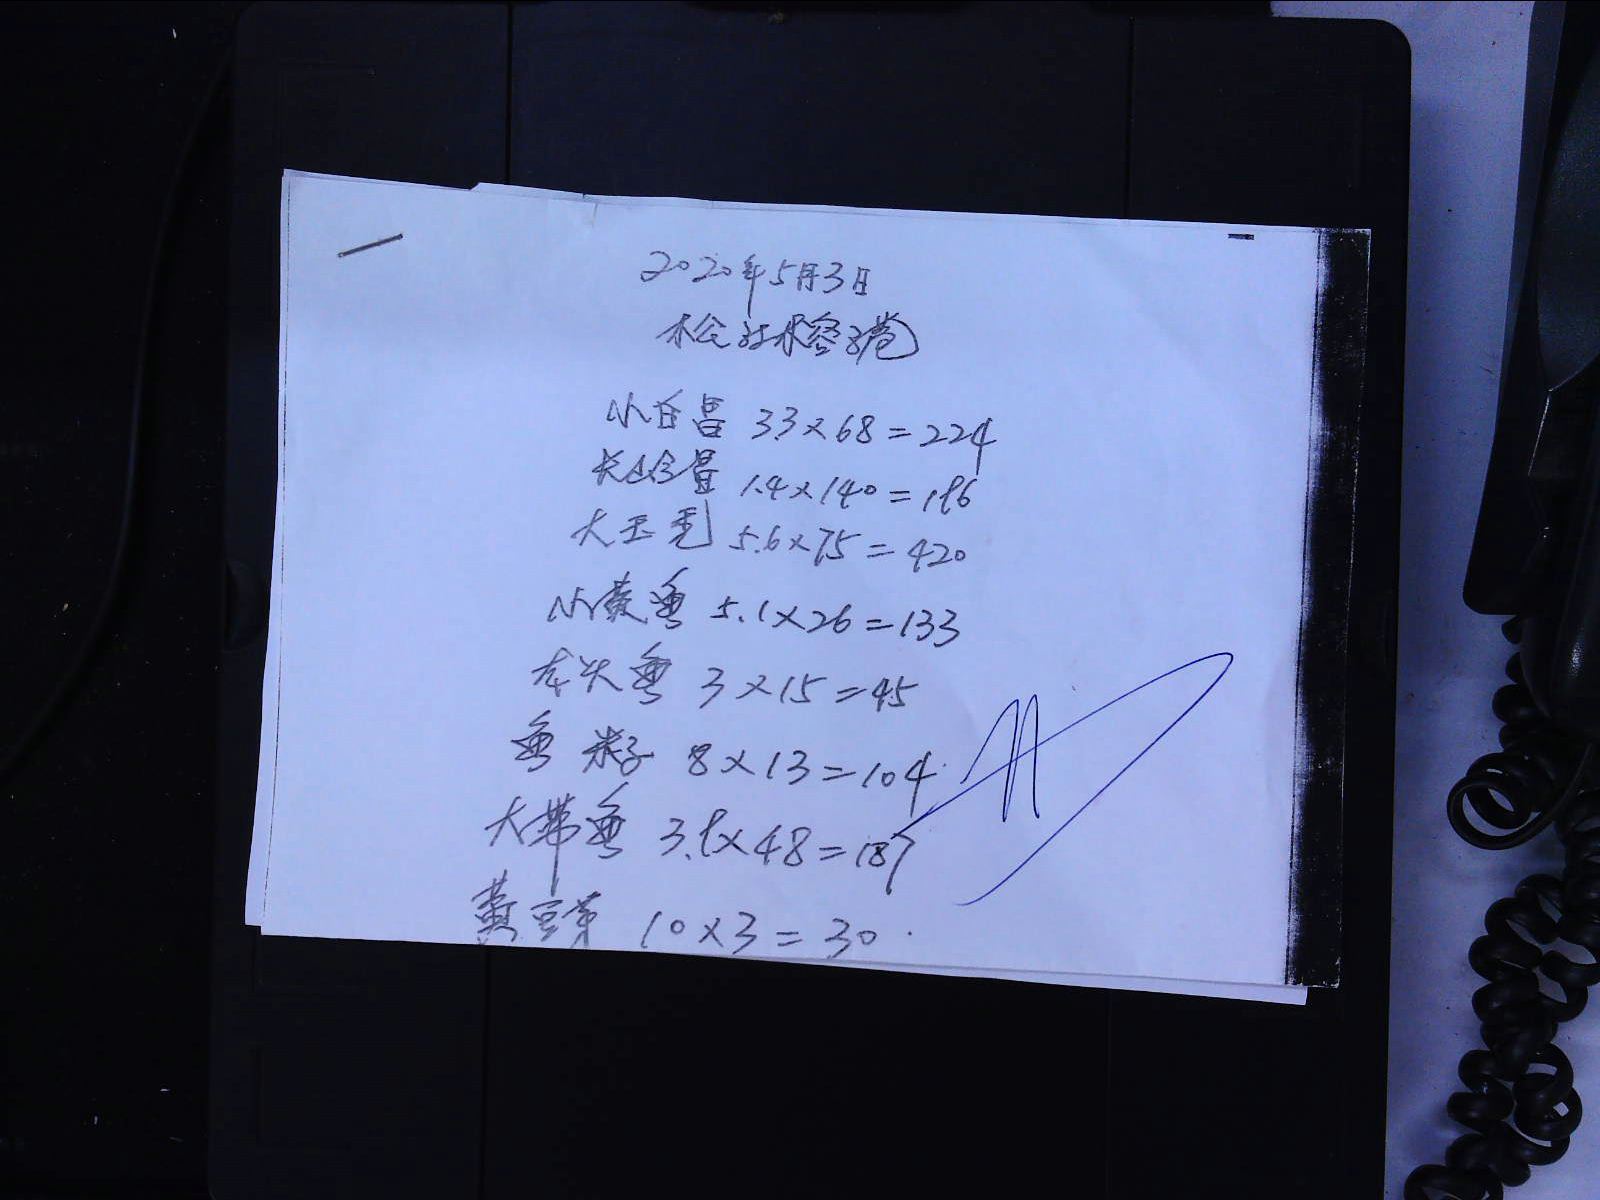 2020年5月3日
小白昌 3.3×68=224
昌 1.4×140=196
大玉秃 5.6×75=420
小黄鱼 5.1×26=133
头鱼 3×15=45
鱼米子 8×13=104
大带鱼 3.9×48=187
黄豆芽 10×3=30